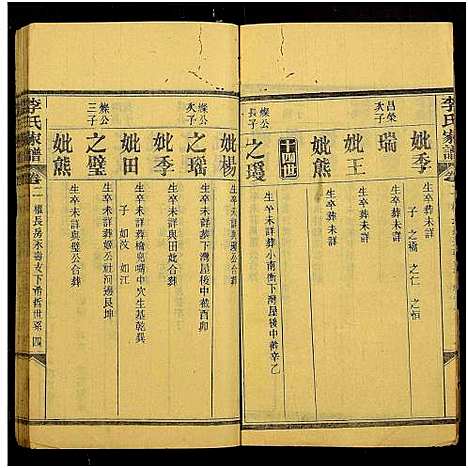 李氏家譜
妣季
生卒葬未詳
子 之璚 之仁 之恒
昌榮次子
瑞
生卒葬未詳
妣王
生卒葬未詳
十四世
妣熊
生卒未詳葬小南衝下灣屋後中截辛乙
燦公長子
之瑪
妣楊
生卒葬未詳
燦公次子
之瑤
生卒未詳葬下灣屋後中截酉卯
妣季
生卒未詳與田妣合葬
妣田
生卒未詳葬檜兜嘴中穴生基乾巽
子 如汶 如江
燦公三子
之璧
生卒未詳葬姬公社河邊艮坤
妣熊
生卒未詳與璧公合葬
李氏家譜
卷二 權長房永壽支下希哲世系 四